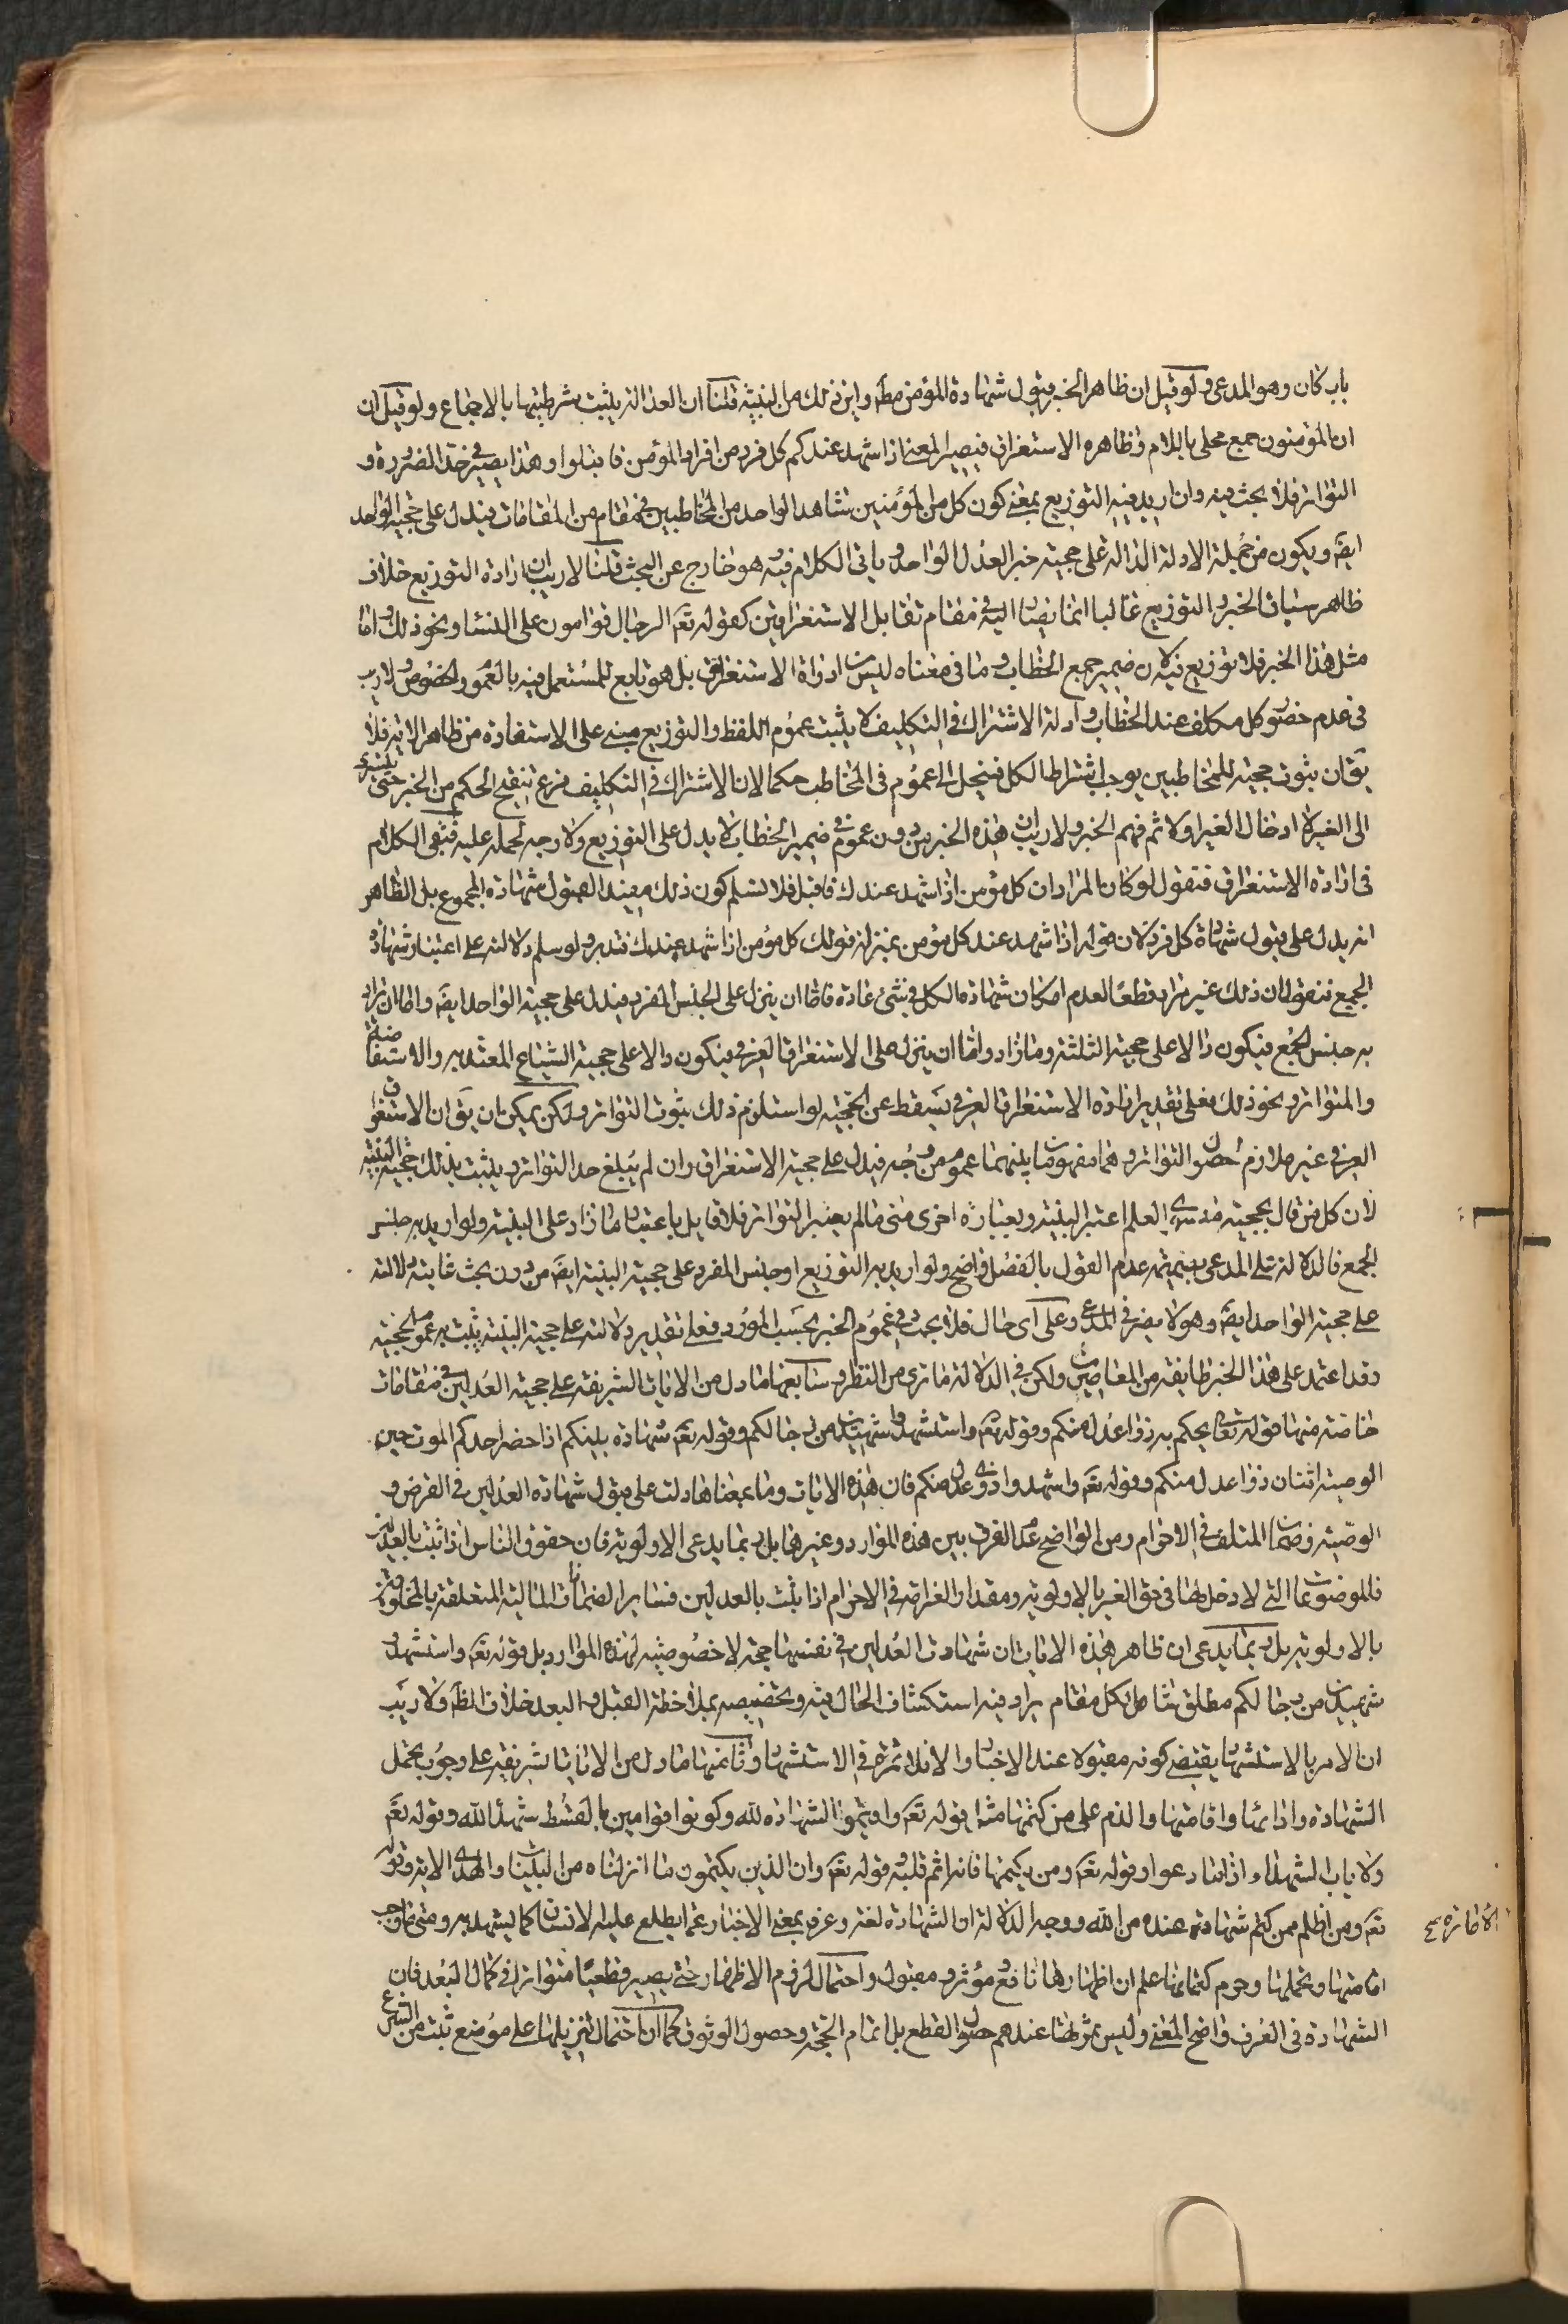 باب كان وهو المدعى ولو قيل ان ظاهر الخبر قبول شهادة المؤمن مطلقا واين ذلك من البينة قلنا ان العدالة يثبت شرطيتها بالاجماع ولو قيل ان
ان المؤمنون جمع محلى باللام وظاهره الاستغراق فيصير المعنى اذا شهد عندكم كل فرد من افراد المؤمن فاقبلوا وهذا يصير في حد الضرورة و
التواتر فلا بحث فيه وان اريد فيه التوزيع بمعنى كون كل من المؤمنين شاهد الواحد من المخاطبين في مقام من المقامات فيدل على حجية الواحد
ايضا ويكون من جملة الادلة الدالة على حجية خبر العدل الواحد وياتى الكلام فيه وهو خارج عن البحث قلنا لا ريب ان ارادة التوزيع خلاف
ظاهر سياق الخبر والتوزيع غالبا انما يصار اليه في مقام تقابل الاستغراقين كقوله تعـ الرجال قوامون على النساء ونحو ذلك واما
مثل هذا الخبر فلا توزيع فيه لان ضمير جمع الخطاب وما في معناه ليس من ادوات الاستغراق بل هو تابع للمستعمل فيه بالعموم والخصوص ولا ريب
في عدم حضور كل مكلف عند الخطاب وادلة الاشتراك في التكليف لا يثبت عموم اللفظ والتوزيع مبني على الاستفادة من ظاهر الاية فلا
يقـ ان ثبوت حجيته للمخاطبين يوجب اشتراط الكل فينحل الى العموم في المخاطب حكما لان الاشتراك في التكليف فرع تنقيح الحكم من الخبر حتى يتسرى
الى الغير لا ادخال الغير اولا ثم فهم الخبر ولا ريب ان هذه الخبر من دون عموم في ضمير الخطاب لا يدل على التوزيع ولا وجه لحمله عليه فبقي الكلام
في ارادة الاستغراق فنقول لو كان المراد ان كل مؤمن اذا شهد عندك فاقبل فلا نسلم كون ذلك مفيدا لقبول شهادة المجموع بل الظاهر
انه يدل على قبول شهادة كل فرد لان قوله اذا شهد عندك كل مؤمن بمنزلة قولك كل مؤمن اذا شهد عندك فتدبر ولو سلم دلالته على اعتبار شهادة
الجميع فنقول ان ذلك غير مراد قطعا لعدم امكان شهادة الكل في شئ عادة فاما ان ينزل على الجنس المفرد فيدل على حجية الواحد ايضا واما ان يراد
به جنس الجمع فيكون دالا على حجية الثلثة وما زاد واما ان ينزل على الاستغراق العرفي فيكون دالا على حجية الشياع المعتد به والاستفاضة
والمتواتر ونحو ذلك فعلى تقدير ارادة الاستغراق العرفي يسقط عن الحجية لو استلزم ذلك ثبوت التواتر ولكن يمكن ان يقـ ان الاستغراق
العرفي غير ملازم لحصول التواتر وهما مفهومان بينهما عموم من وجه فيدل على حجية الاستغراق وان لم يبلغ حد التواتر ويثبت بذلك حجية البينة
لان كل من قال بحجية ما سوى العلم اعتبر البينة وبعبارة اخرى متى ما لم يعتبر التواتر فلا قايل باعتبار ما زاد على البينة ولو اريد به جنس
الجمع فالدلالة على المدعى بضميمة عدم القول بالفصل واضح ولو اريد به التوزيع او جنس المفرد على حجية البينة ايضا من دون بحث غايته دلالته
على حجية الواحد ايضا وهو لا يضر في المدعى وعلى اى حال فلا بحث في عموم الخبر بحسب المورد فعلى تقدير دلالته على حجية البينة يثبت به عموم الحجية
وقد اعتمد على هذا الخبر طايفة من المعاصرين ولكن في الدلالة ما ترى من النظر وسابعها ما دل من الايات الشريفة على حجية العدلين في مقامات
خاصة منها قوله تعالى يحكم به ذوا عدل منكم وقوله تعـ واستشهدوا شهيدين من رجالكم وقوله تعـ شهادة بينكم اذا حضر احدكم الموت حين
الوصية اثنان ذوا عدل منكم وقوله تعـ واشهدوا ذوى عدل منكم فان هذه الايات وما بمعناها دلت على قبول شهادة العدلين في القرض و
الوصية وضمان المتلف في الاحرام ومن الواضح عدم الفرق بين هذه الموارد وغيرها بل ربما يدعى الاولوية فان حقوق الناس اذا ثبت بالعدلين
فالموضوعات التي لا دخل لها في حق الغير بالاولوية ومقدار الغرامة في الاحرام اذا يثبت بالعدلين فساير الضمانات المالية المتعلقة بالمخلوقين
بالاولوية بل ربما يدعى ان ظاهر هذه الايات ان شهادة العدلين في نفسها حجة لا خصوصية لهذه الموارد بل قوله تعـ واستشهدوا
شهيدين من رجالكم مطلق شامل لكل مقام يراد فيه استكشاف الحال فيه وتخصيصه بملاحظة القبل والبعد خلاف الظـ ولا ريب
ان الامر بالاستشهاد يقتضي كونه مقبولا عند الاخبار والا فلا ثمرة في الاستشهاد وثامنها ما دل من الايات الشريفة على وجوب تحمل
الشهادة وادائها واقامتها والذم على من كتمها مثل قوله تعـ واقيموا الشهادة لله وكونوا قوامين بالقسط شهداء لله وقوله تعـ
ولا ياب الشهداء اذا ما دعوا وقوله تعـ ومن يكتمها فانه اثم قلبه وقوله تعـ وان الذين يكتمون ما انزلناه من البينات والهدى الاية وقوله
تعـ ومن اظلم ممن كتم شهادة عنده من الله ووجه الدلالة ان الشهادة لغة وعرفا بمعنى الاخبار عما يطلع عليه الانسان كما يشهد به ومتى ما وجب
اقامتها وتحملها وحرم كتمانها علم ان اظهارها نافع ومؤثر ومقبول واحتمال لزوم الاظهار حتى يصير قطعيا متواترا في كمال البعد فان
الشهادة في العرف واضح المعنى وليس ثمرتها عندهم حصول القطع بل اتمام الحجة وحصول الوثوق كما ان احتمال تنزيلها على موضع ثبت من الشرع